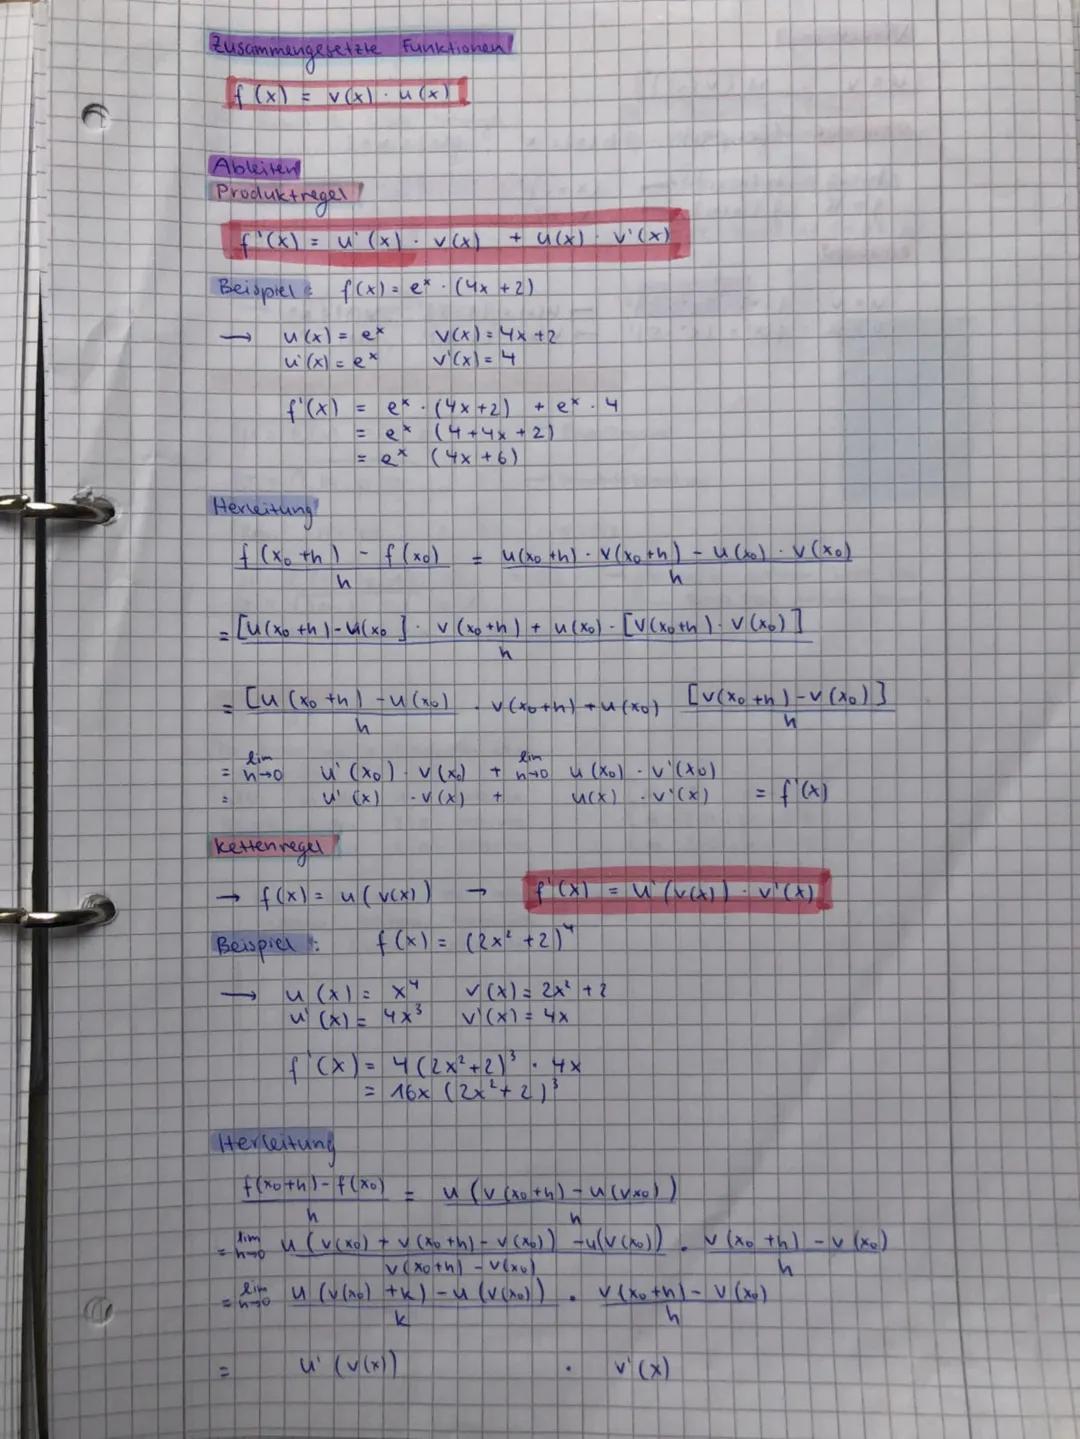 Zusammengesetzte Funktionen
f(x) = v(x) · u(x)
Ableiten
Produktregel
f'(x) = u'(x) · v(x) + u(x) · v'(x)
Beispiel: f(x) = eˣ · (4x + 2)
→ u(x) = eˣ v(x) = 4x + 2
u'(x) = eˣ v'(x) = 4
f'(x) = eˣ · (4x+2) + eˣ · 4
= eˣ (4 + 4x + 2)
= eˣ (4x + 6)
Herleitung
f(x₀+h) - f(x₀) = u(x₀+h) · v(x₀+h) - u(x₀) · v(x₀)
h h
= [u(x₀+h) - u(x₀] · v(x₀+h) + u(x₀) · [v(x₀+h) · v(x₀)]
h
= [u(x₀+h) - u(x₀) · v(x₀+h) + u(x₀) [v(x₀+h) - v(x₀)]
h h
= lim h→0 u'(x₀) · v(x₀) + lim h→0 u(x₀) · v'(x₀)
= u'(x) · v(x) + u(x) · v'(x) = f'(x)
Kettenregel
→ f(x) = u(v(x)) → f'(x) = u'(v(x)) · v'(x)
Beispiel: f(x) = (2x² + 2)⁴
→ u(x) = x⁴ v(x) = 2x² + 2
u'(x) = 4x³ v'(x) = 4x
f'(x) = 4(2x²+2)³ · 4x
= 16x (2x²+2)³
Herleitung
f(x₀+h) - f(x₀) = u(v(x₀+h) - u(vx₀))
h h
= lim h→0 u(v(x₀) + v(x₀+h) - v(x₀)) - u(v(x₀)) · v(x₀+h) - v(x₀)
v(x₀+h) - v(x₀) h
= lim h→0 u(v(x₀) + k) - u(v(x₀)) · v(x₀+h) - v(x₀)
k h
= u'(v(x)) · v'(x)